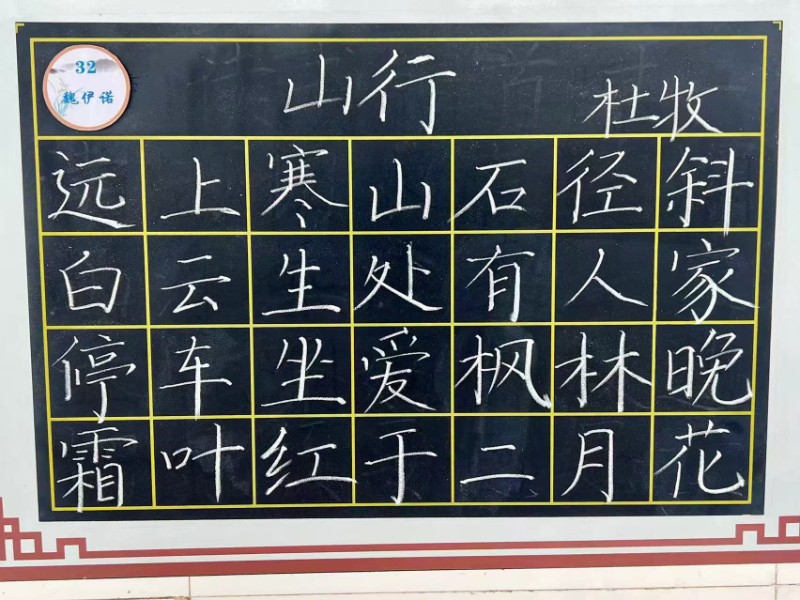 32
魏伊诺
山行
杜牧
远上寒山石径斜
白云生处有人家
停车坐爱枫林晚
霜叶红于二月花